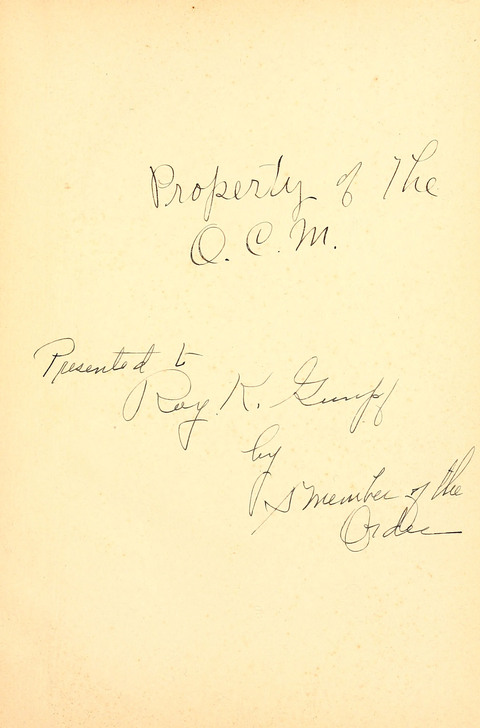 Property of The
O. C. M.
Presented to
Roy K. Gumpf
by
Member of the
Order